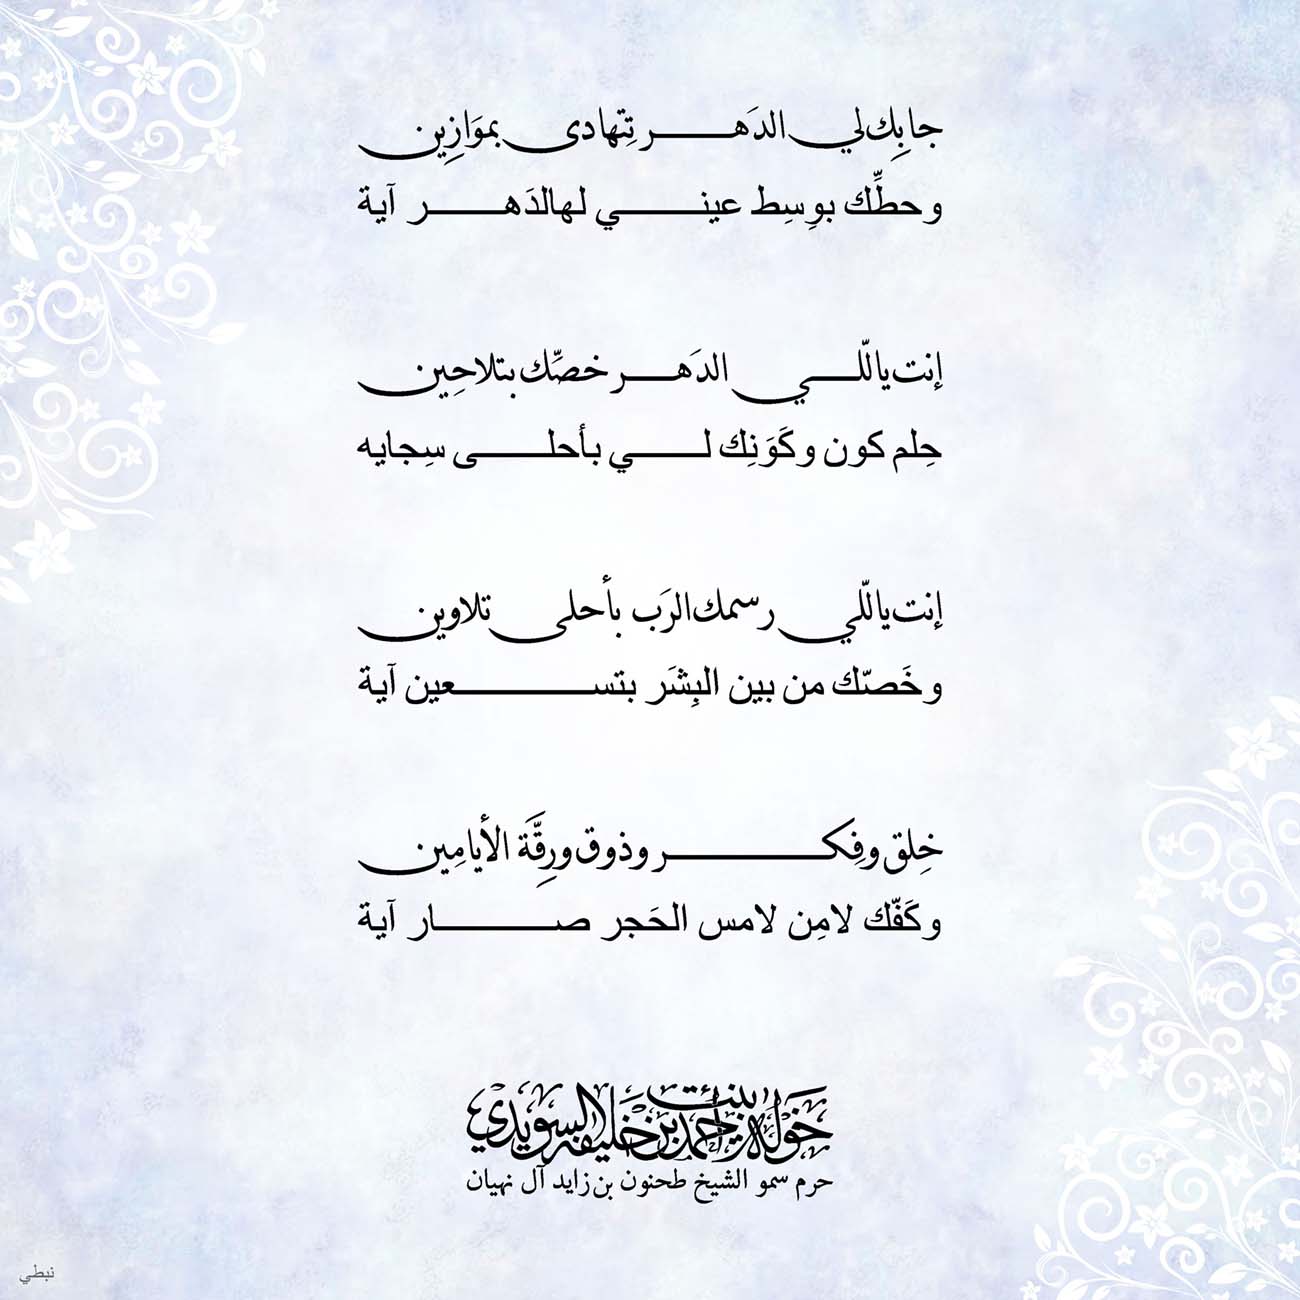 جابِك لي الدَهر تِتهادى بموَازِين
وحطِّك بوِسِط عيني لهالدَهر آية
إنت ياللّي الدَهر خصِّك بتلاحِين
حِلم كون وكَوَنِك لي بأحلى سِجايه
إنت ياللّي رسمك الرَب بأحلى تلاوين
وخَصّك من بين البِشَر بتسعين آية
خِلق وفِكر وذوق ورِقَّة الأيامِين
وكَفّك لامِن لامس الحَجر صار آية
خوله بنت احمد بن خليفه السويدي
حرم سمو الشيخ طحنون بن زايد آل نهيان
نبطي